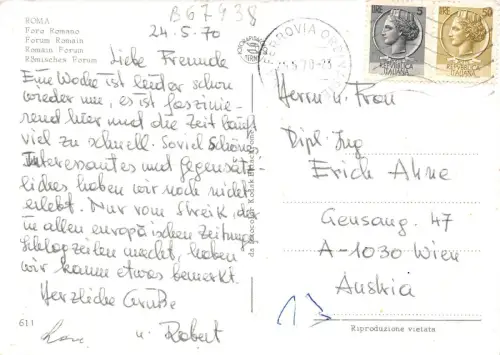 ROMA
Foro Romano
Forum Romain
Roman Forum
Römisches Forum
B67938
24.5.70
Liebe Freunde
Eine Woche ist leider schon
wieder um, es ist faszinie-
rend hier und die Zeit läuft
viel zu schnell. Soviel schönes
Interessantes und gegensätz-
liches, haben wir noch nicht
erlebt. Nur vom Streik, der
in allen europäischen Zeitungen
Schlagzeilen macht, haben
wir kaum etwas bemerkt.
Herzliche Grüße
u. Robert
611
FERROVIA
LIRE
REPUBBLICA
ITALIANA
LIRE
REPUBBLICA
ITALIANA
Herrn u. Frau
Dipl. Ing
Erich Ahne
Gensang. 47
A-1030 Wien
Austria
13
Riproduzione vietata